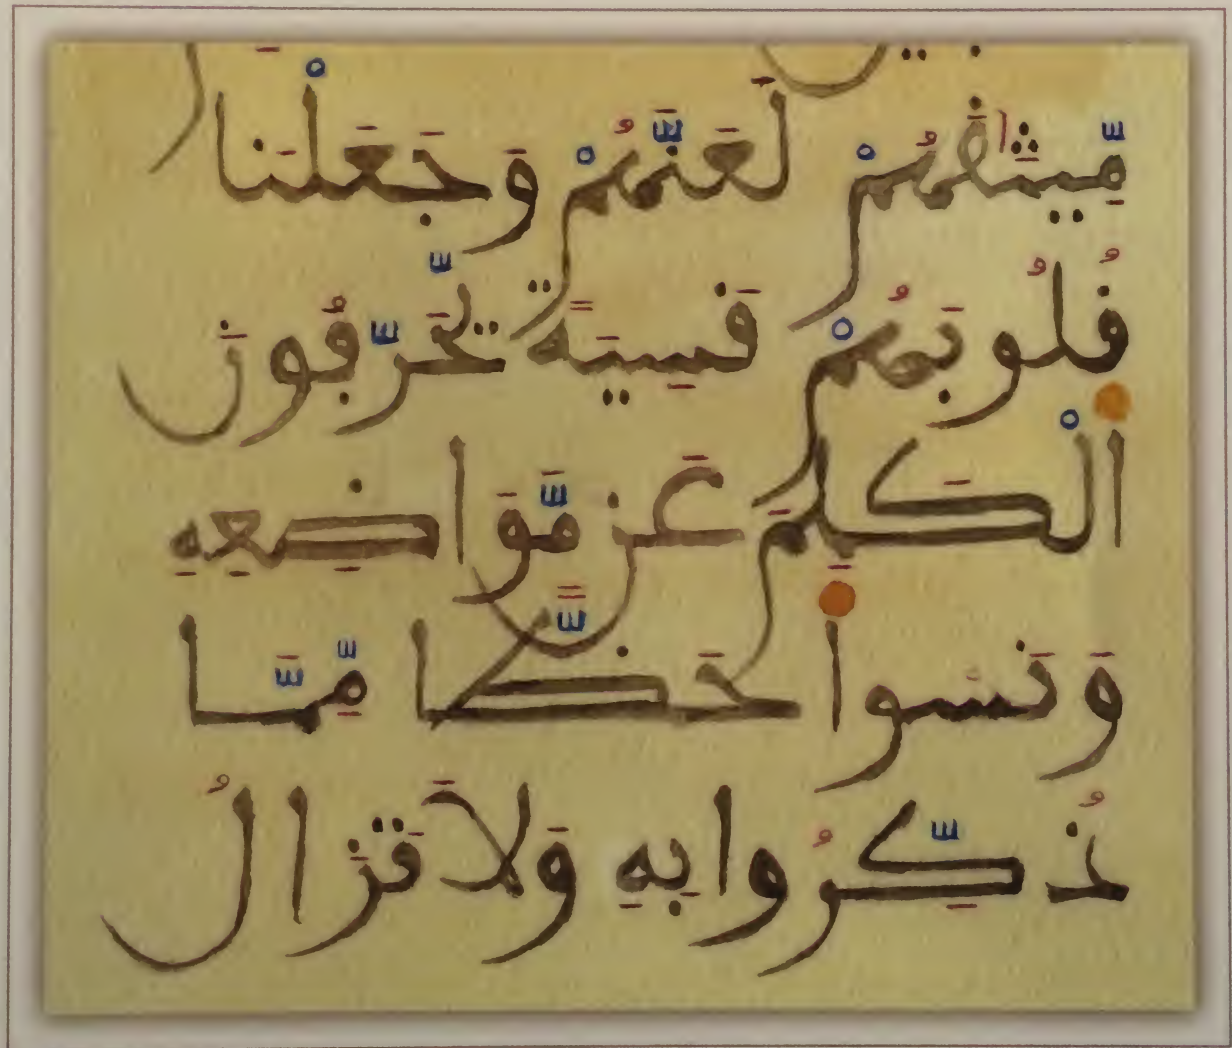 مِّيثَٰقَهُمْ لَعَنَّهُمْ وَجَعَلْنَا
قُلُوبَهُمْ قَسِيَةً يُّحَرِّفُونَ
الْكَلِمَ عَن مَّوَاضِعِهِ
وَنَسُوا حَظًّا مِّمَّا
ذُكِّرُوا بِهِ وَلَا تَزَالُ